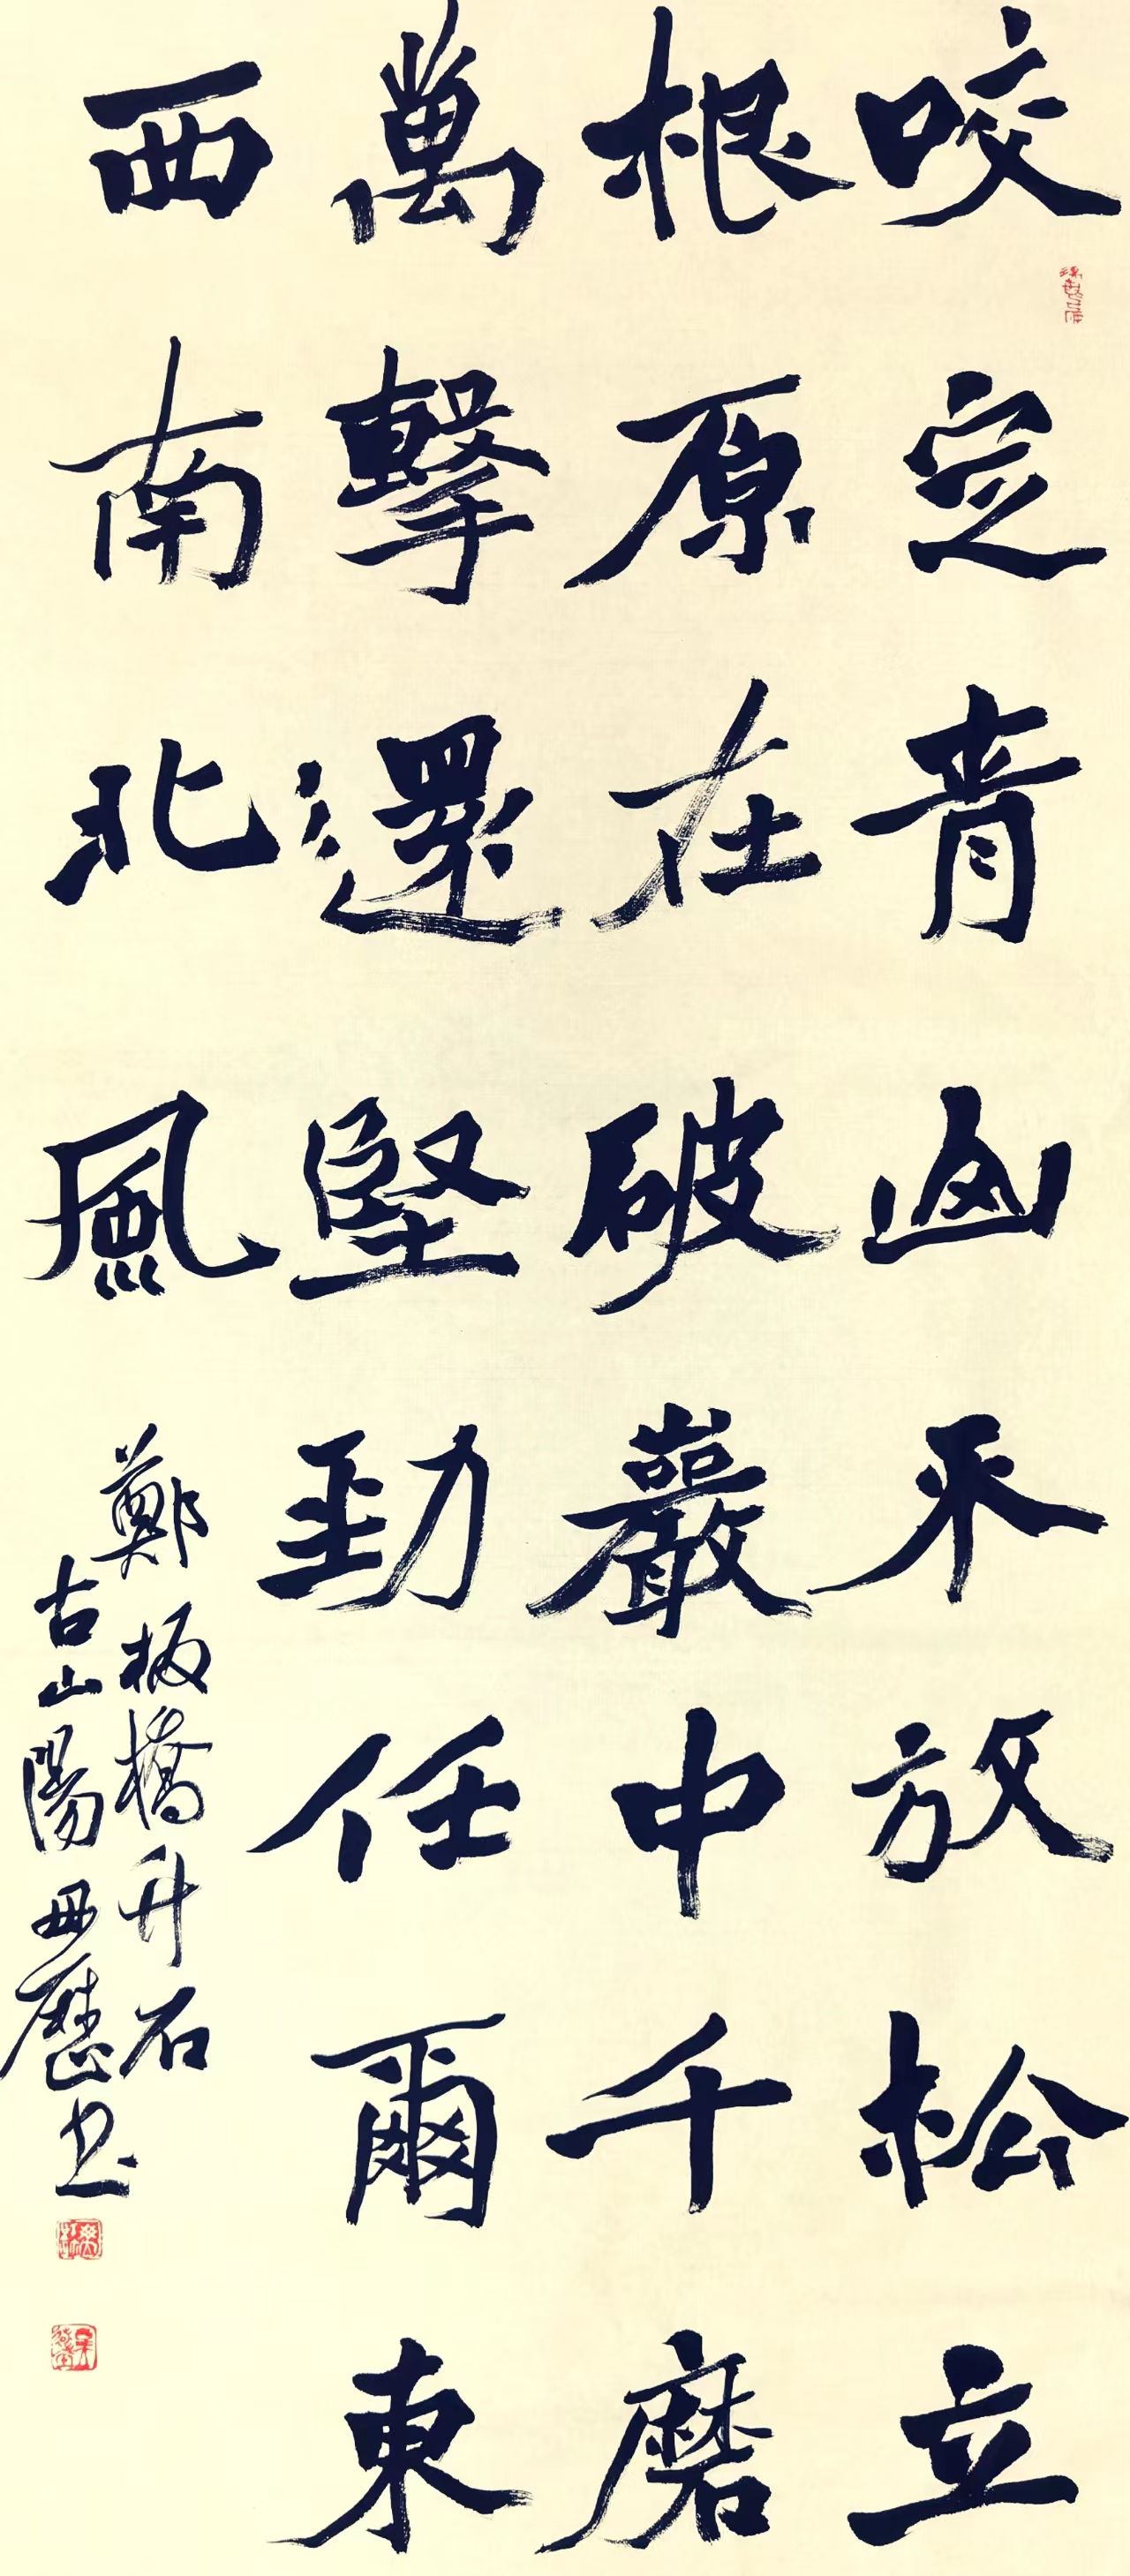 咬定青山不放松立
根原在破巖中千磨
萬擊還堅勁任爾東
西南北風
鄭板橋竹石
古山陽毋歷书